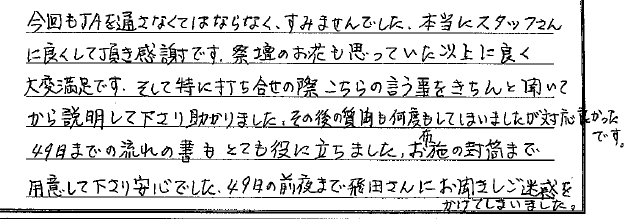 今回もJAを通さなくてはならなく、すみませんでした、本当にスタッフさん
に良くして頂き感謝です。祭壇のお花も思っていた以上に良く
大変満足です。そして特に打ち合せの際こちらの言う事をきちんと聞いて
から説明して下さり助かりました。その後の質問も何度もしてしまいましたが対応良かったです。
49日までの流れの書もとても役に立ちました。お布施の封筒まで
用意して下さり安心でした。49日の前夜まで飛田さんにお聞きしご迷惑を
かけてしまいました。